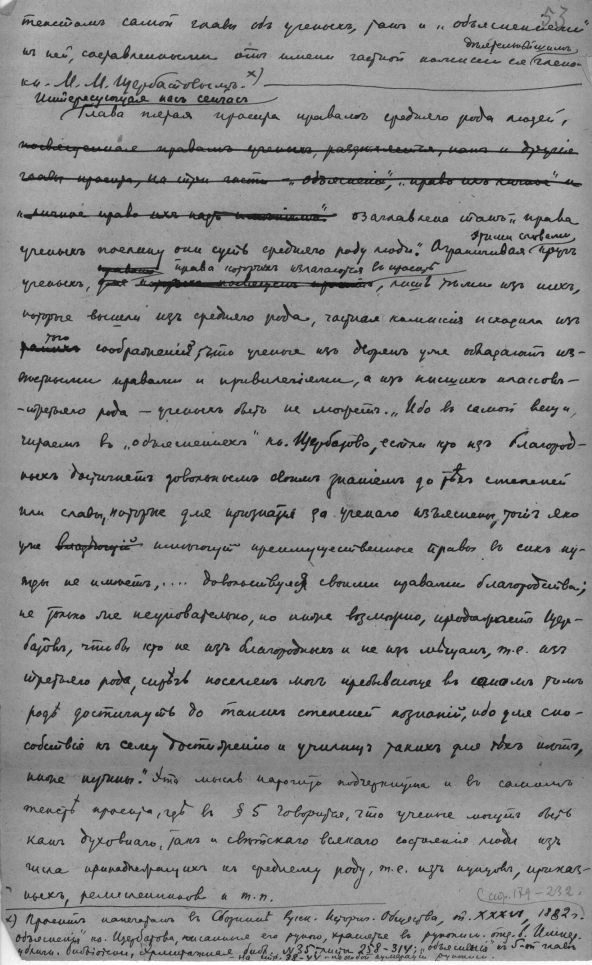 53
текстомъ самой главы объ ученыхъ, такъ и „объясненіемъ"
къ ней, составленнымъ отъ имени частной комиссіи ея дѣятельнѣйшимъ членомъ
кн. М. М. Щербатовымъ. х)
Интересующая насъ сейчасъ
Глава пятая проекта правамъ средняго рода людей,
посвященная правамъ ученыхъ, раздѣляется, какъ и другія
главы проекта, на три части — „объясненія", „право ихъ личное" и
„личное право ихъ надъ имѣніями". озаглавлена такъ: „права
ученыхъ поелику они суть средняго роду люди". Ограничивая этими словами кругъ
ученыхъ, права которыхъ излагаются въ проектѣ, лишь тѣми изъ нихъ,
которые вышли изъ средняго рода, частная комиссія исходила изъ
того соображенія, что ученые изъ дворянъ уже обладаютъ из-
вѣстными правами и привилегіями, а изъ низшихъ классовъ —
— третьяго рода — ученыхъ быть не можетъ. „Ибо въ самой вещи,
читаемъ въ „объясненіяхъ" кн. Щербатова, естьли кто изъ благород-
ныхъ достигнетъ довольнымъ своимъ знаніемъ до тѣхъ степеней
или славы, которые для признатія за ученаго изъяснены, тотъ яко
уже владѣющій имѣющій преимущественные права въ сихъ ну-
жды не имѣетъ, .... довольствуяся своими правами благородства;
не только же неуповательно, но ниже возможно, продолжаетъ Щер-
батовъ, чтобы кто не изъ благородныхъ и не изъ мѣщанъ, т.е. изъ
третьяго рода, сирѣчь поселянъ могъ пребывающе въ самомъ томъ
родѣ достигнуть до такихъ степеней познаній, ибо для спо-
собствіе къ сему достиженію и училищъ такихъ для нихъ нѣтъ,
ниже нужны." Эта мысль нарочито подчеркнута и въ самомъ
текстѣ проекта, гдѣ въ § 5 говорится, что ученые могутъ быть
какъ духовнаго, такъ и свѣтскаго всякаго состоянія люди изъ
числа принадлежащихъ къ среднему роду, т.е. изъ купцовъ, приказ-
ныхъ, ремесленниковъ и т.п. (стр. 179-232.
х) Проектъ напечатанъ въ Сборникѣ Русск. Историч. Общества, т. XXXVI, 1882 г.
„объясненія" кн. Щербатова, писанные его рукою, хранятся въ рукописн. отд. б. Импер.
публичн. библіотеки, Эрмитажное собр. №35 листы 258-314; „объясненія" къ 5-ой главѣ
на стр. 38-44 новой нумераціи рукописи.